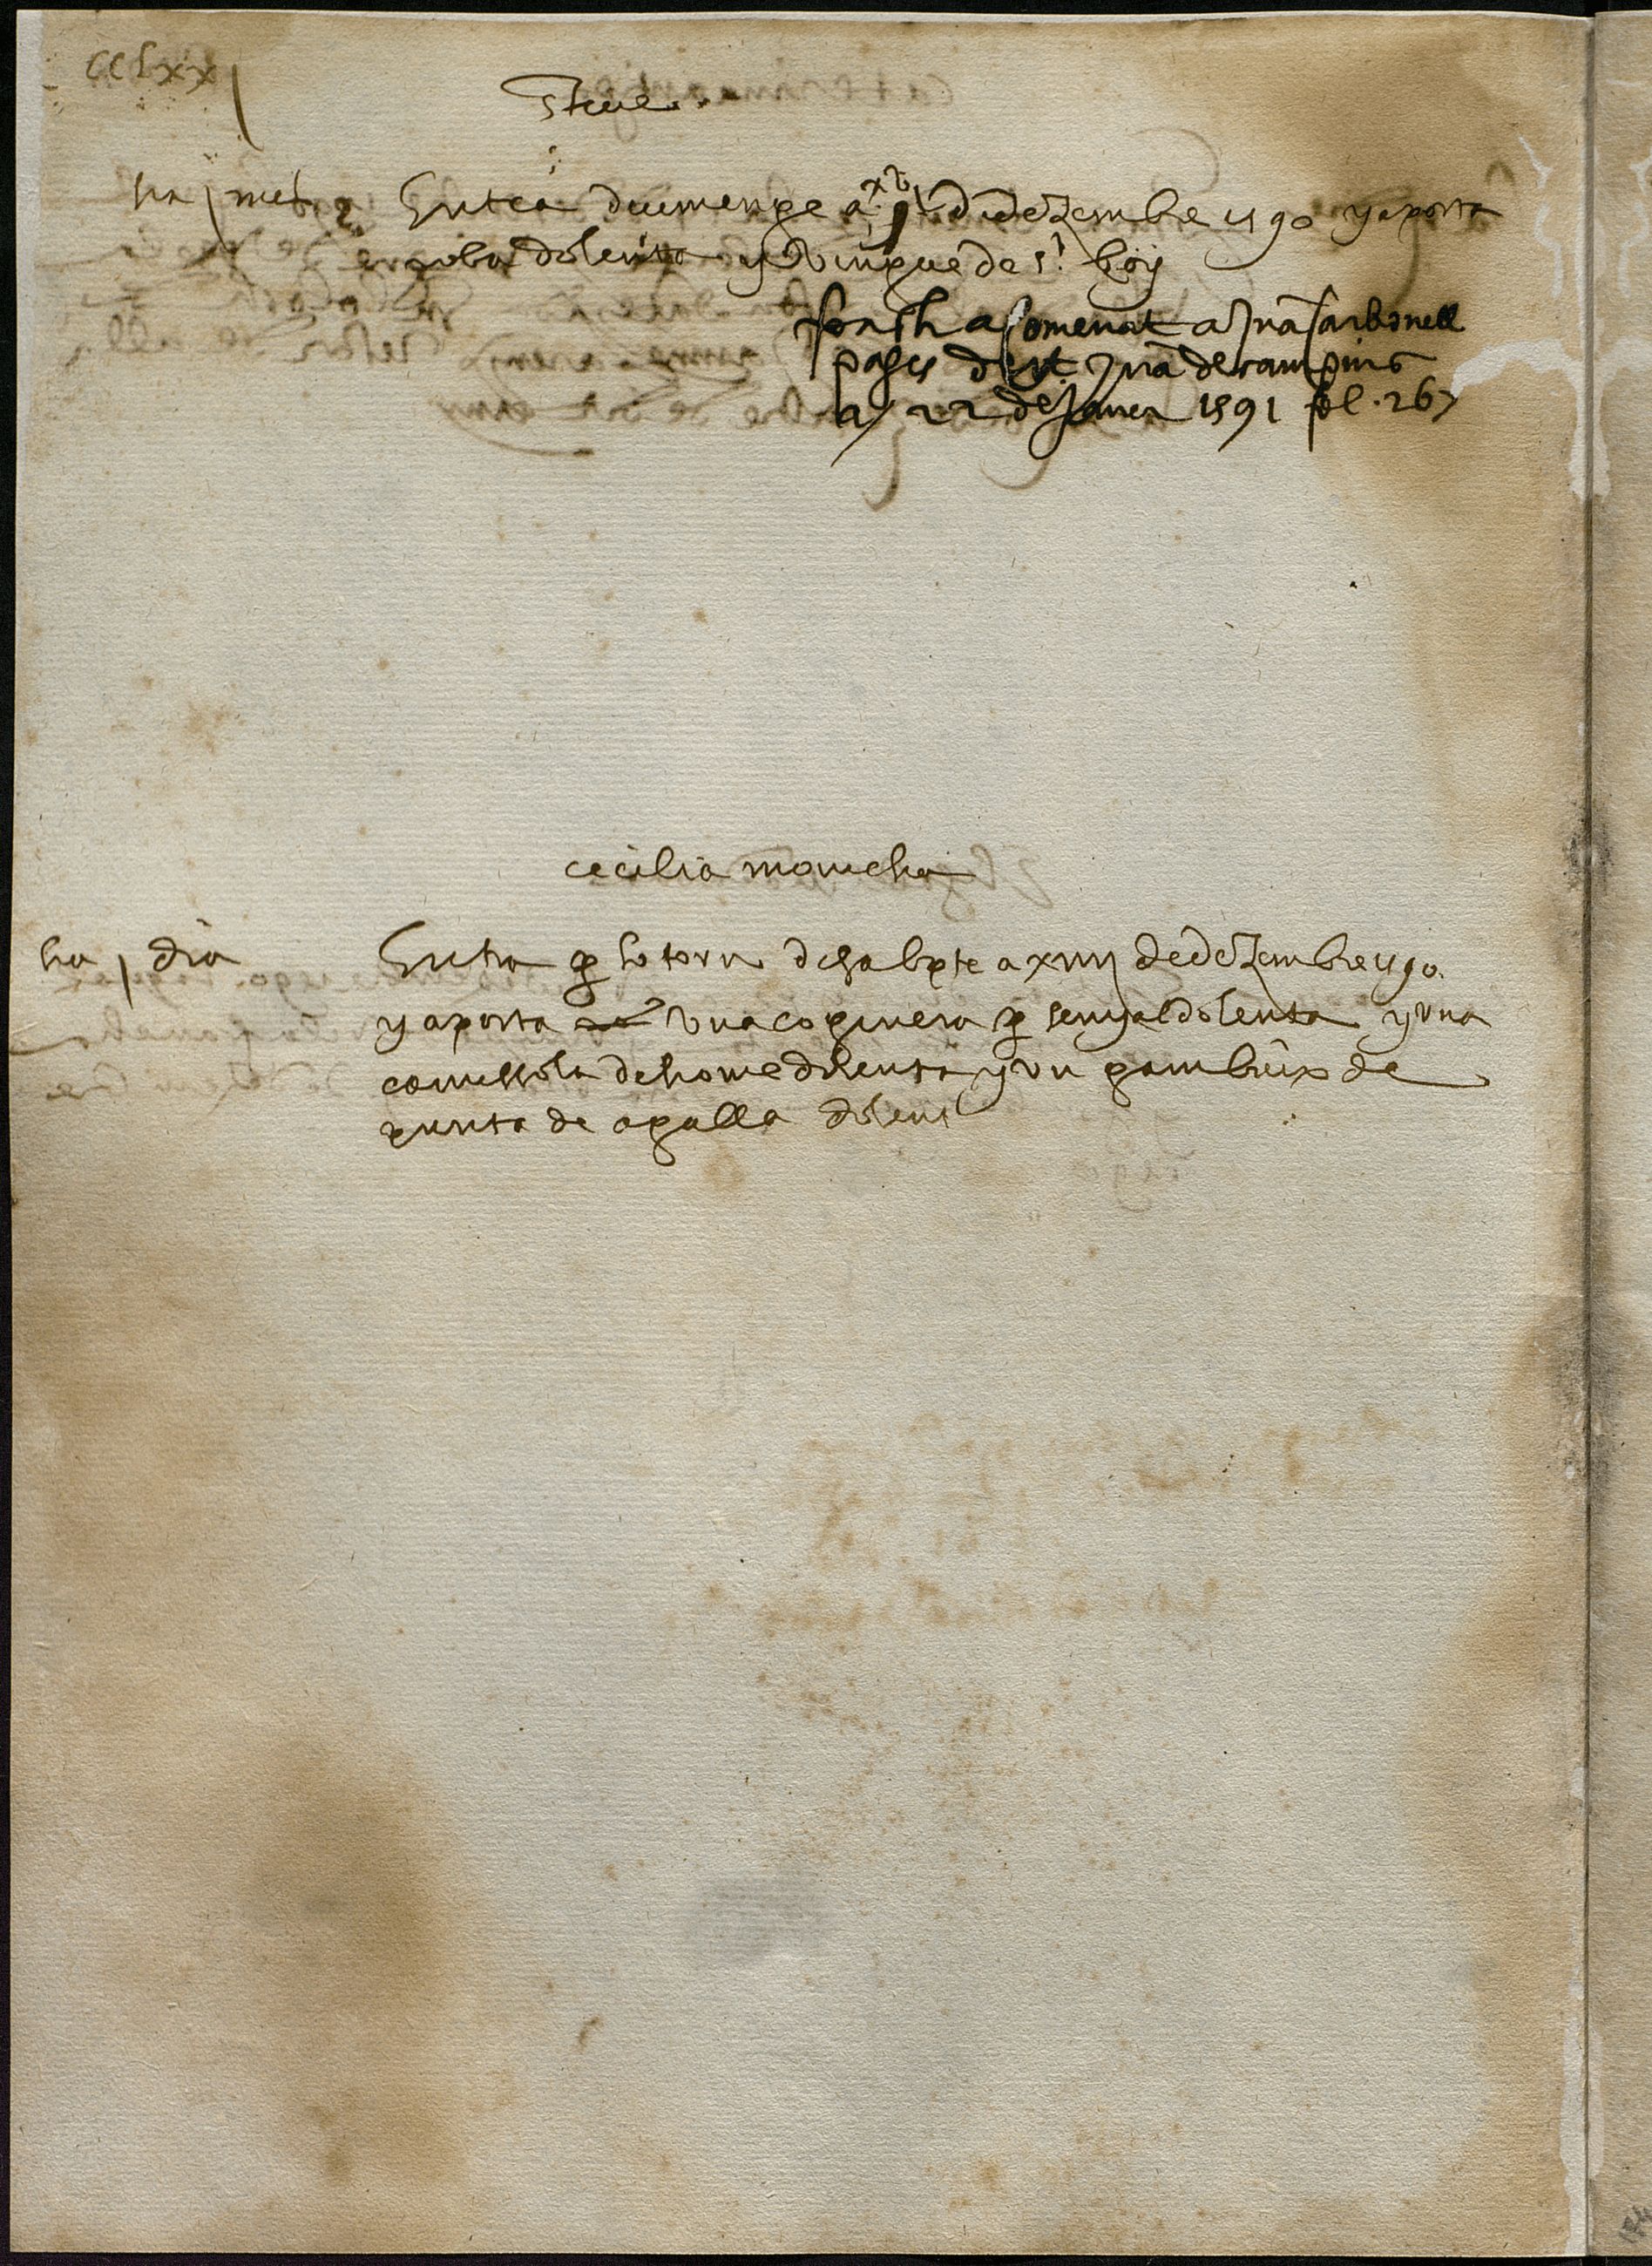 cclxx
steue
ha j mes Entra diumenge a xvj d dezembre 1590 y aporta
roba dolenta y vingue de st. boy
fonch acomenat a Juā Carbonell
pages de st Juā de campins
a 22 de Janer 1591 fol. 267
cecilia moncha
ha j dia Entra p lo torn disabpte a xviiij de dezembre 1590
y aporta vna coginera p senyal dolenta y vna
camissola de home dolenta y vn gambuix de
punta de agulla dolent